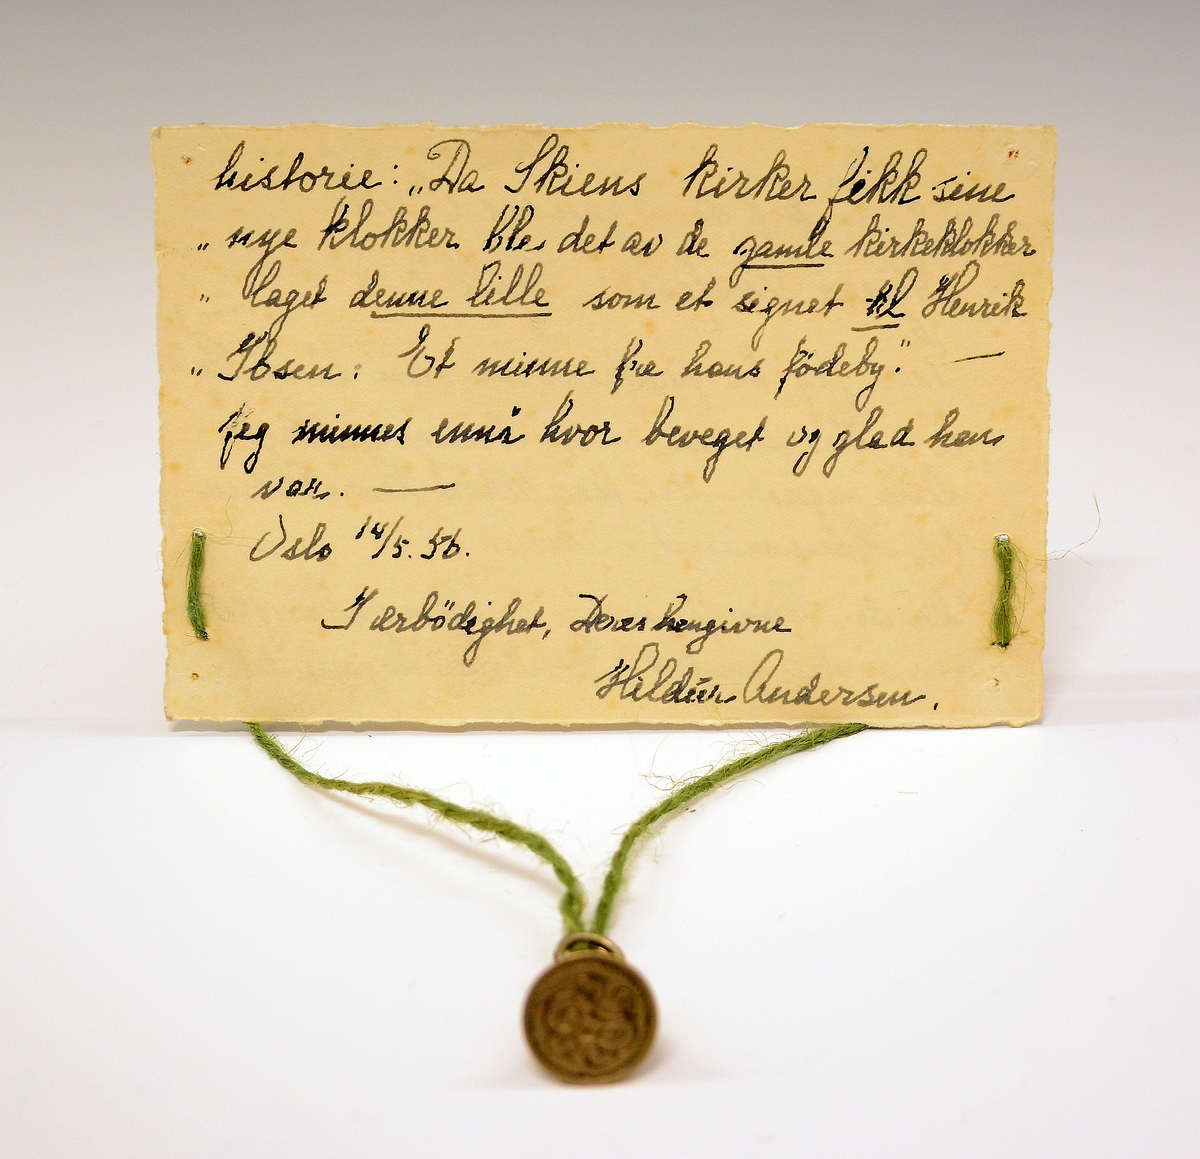 historie: „Da Skiens kirker fikk sine
„ nye klokker ble det av de gamle kirkeklokker
„ laget denne lille som et signet til Henrik
„ Ibsen: Et minne fra hans födeby." —
Jeg minnes ennå hvor beveget og glad han
var. —
Oslo 14/5. 56.
I ærbödighet, Deres hengivne
Hildur Andersen.